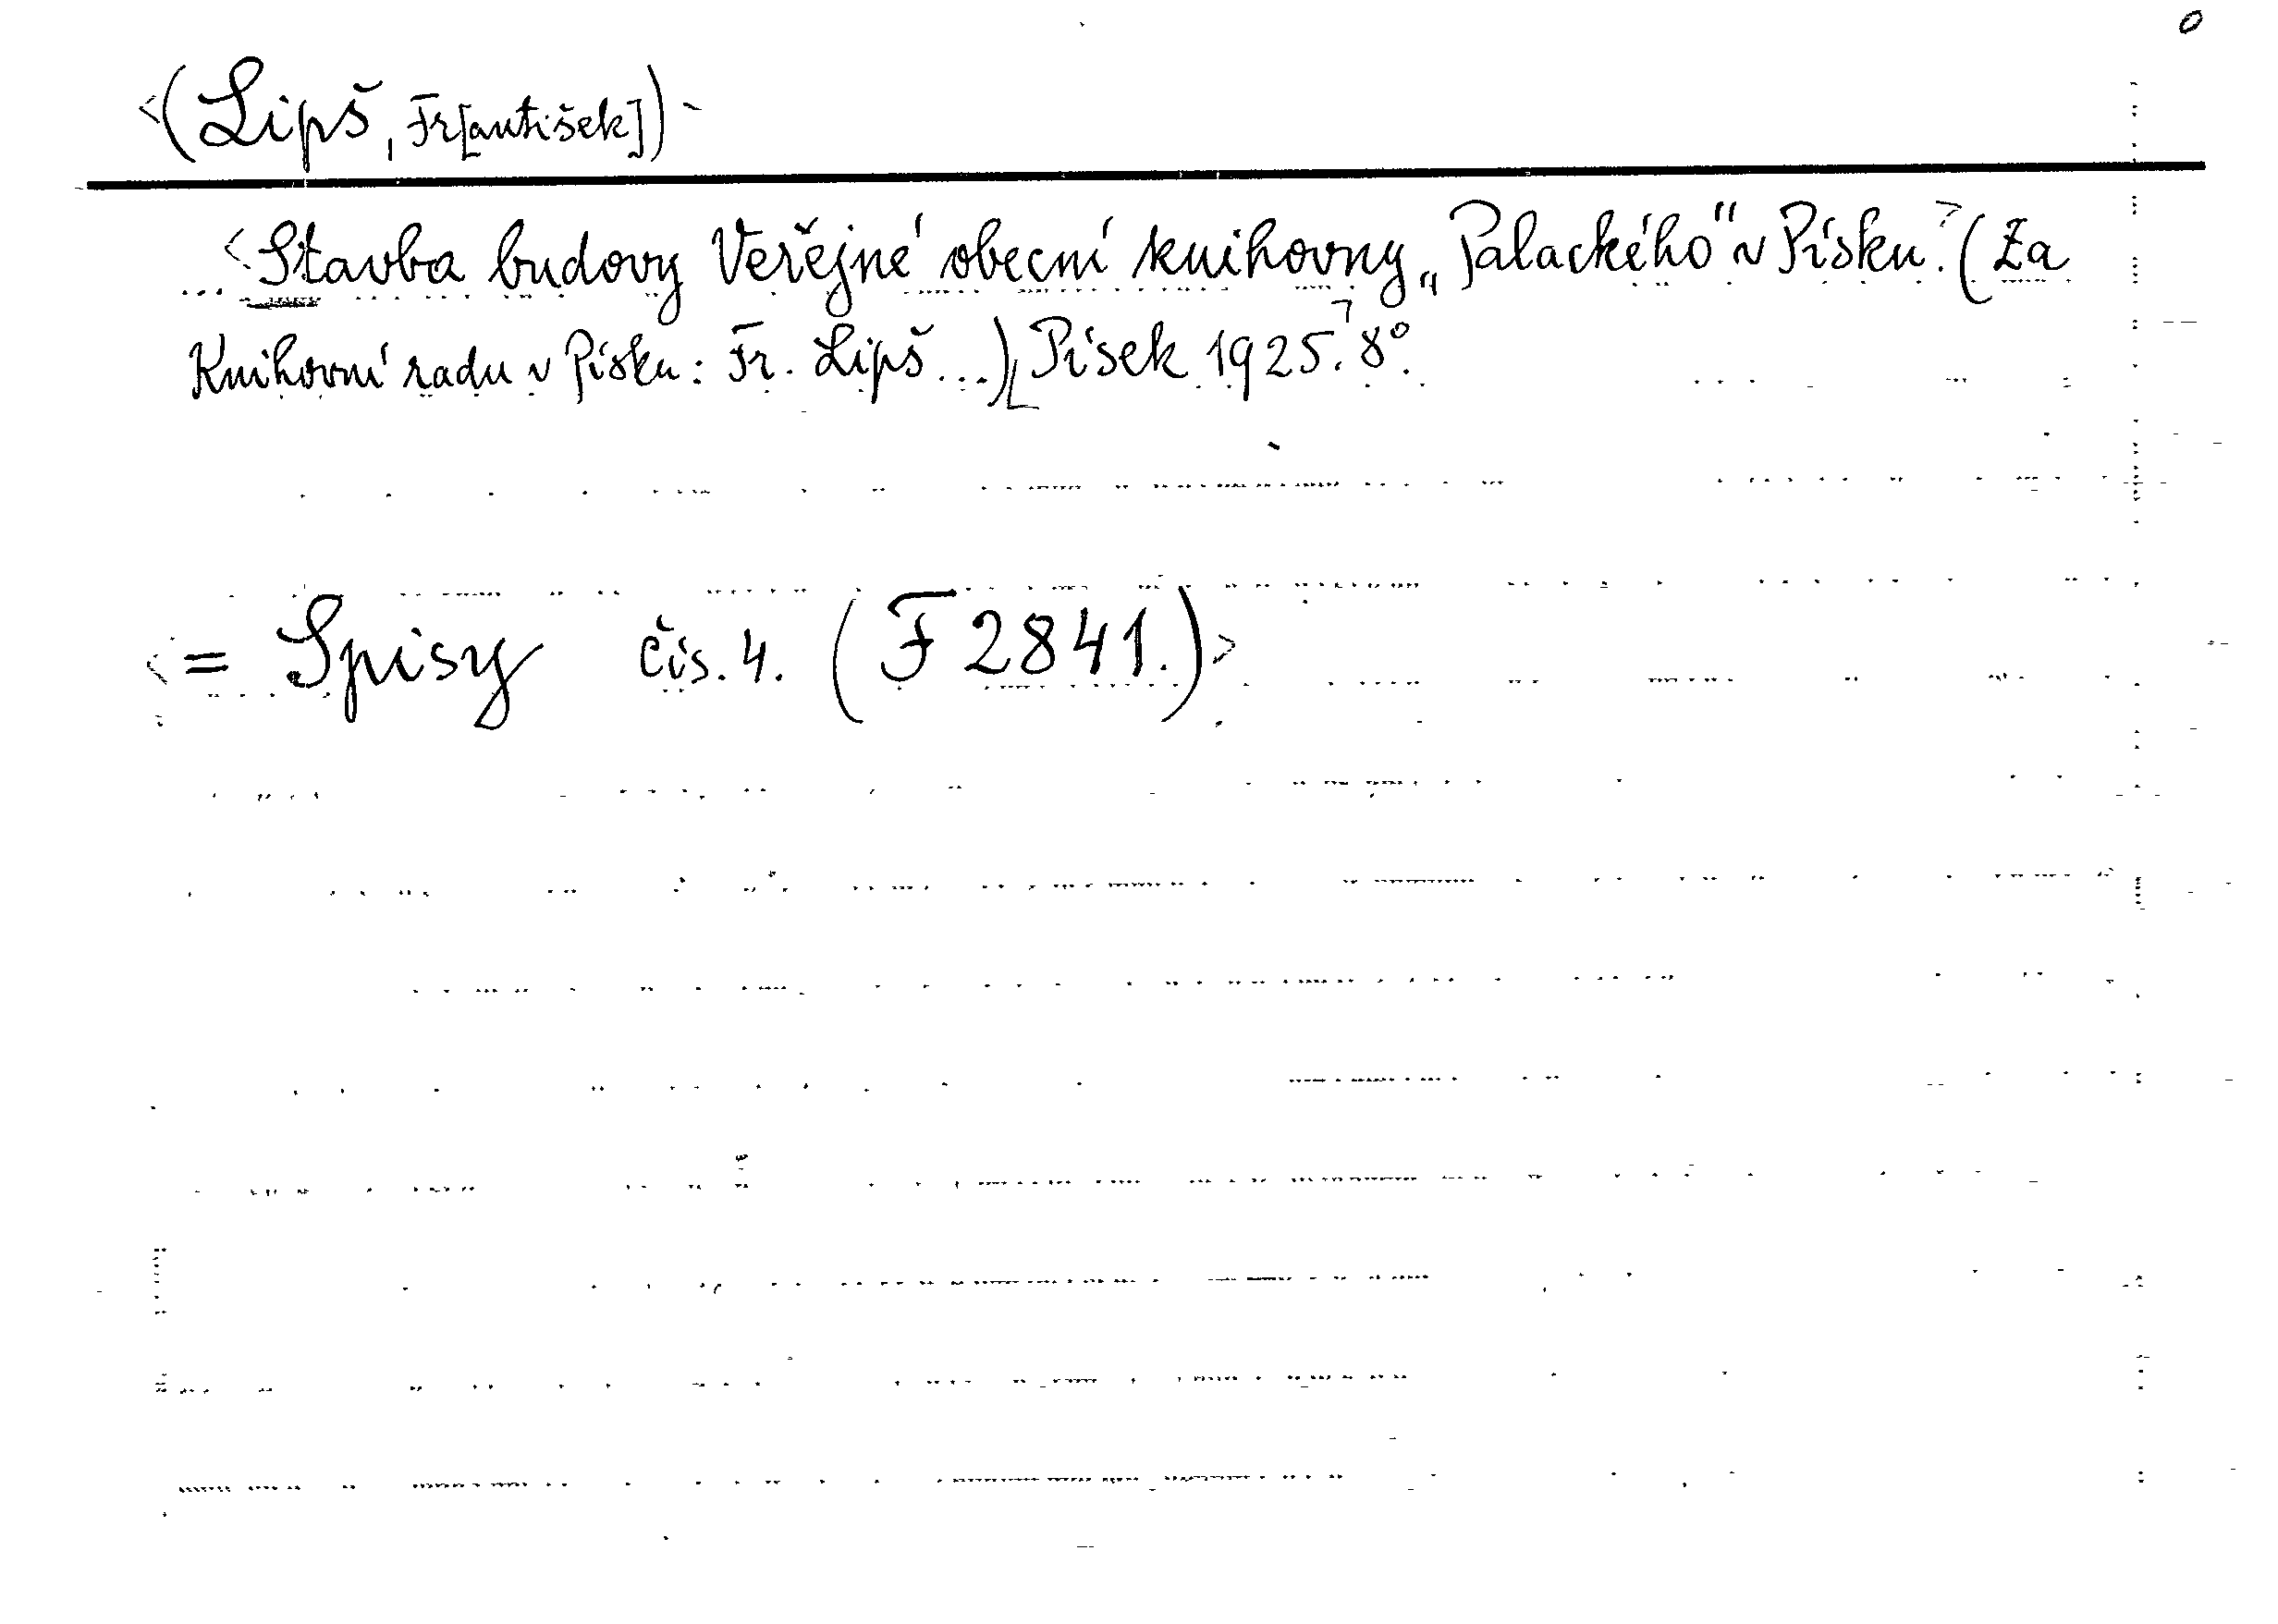 <(Lipš, Fr[antišek])-
... <Stavba budovy Veřejné obecní knihovny „Palackého“ v Písku.> (Za
Knihovní radu v Písku: Fr. Lipš...) Písek 1925. 8°.
<= Spisy čís. 4. (F 2841.)>